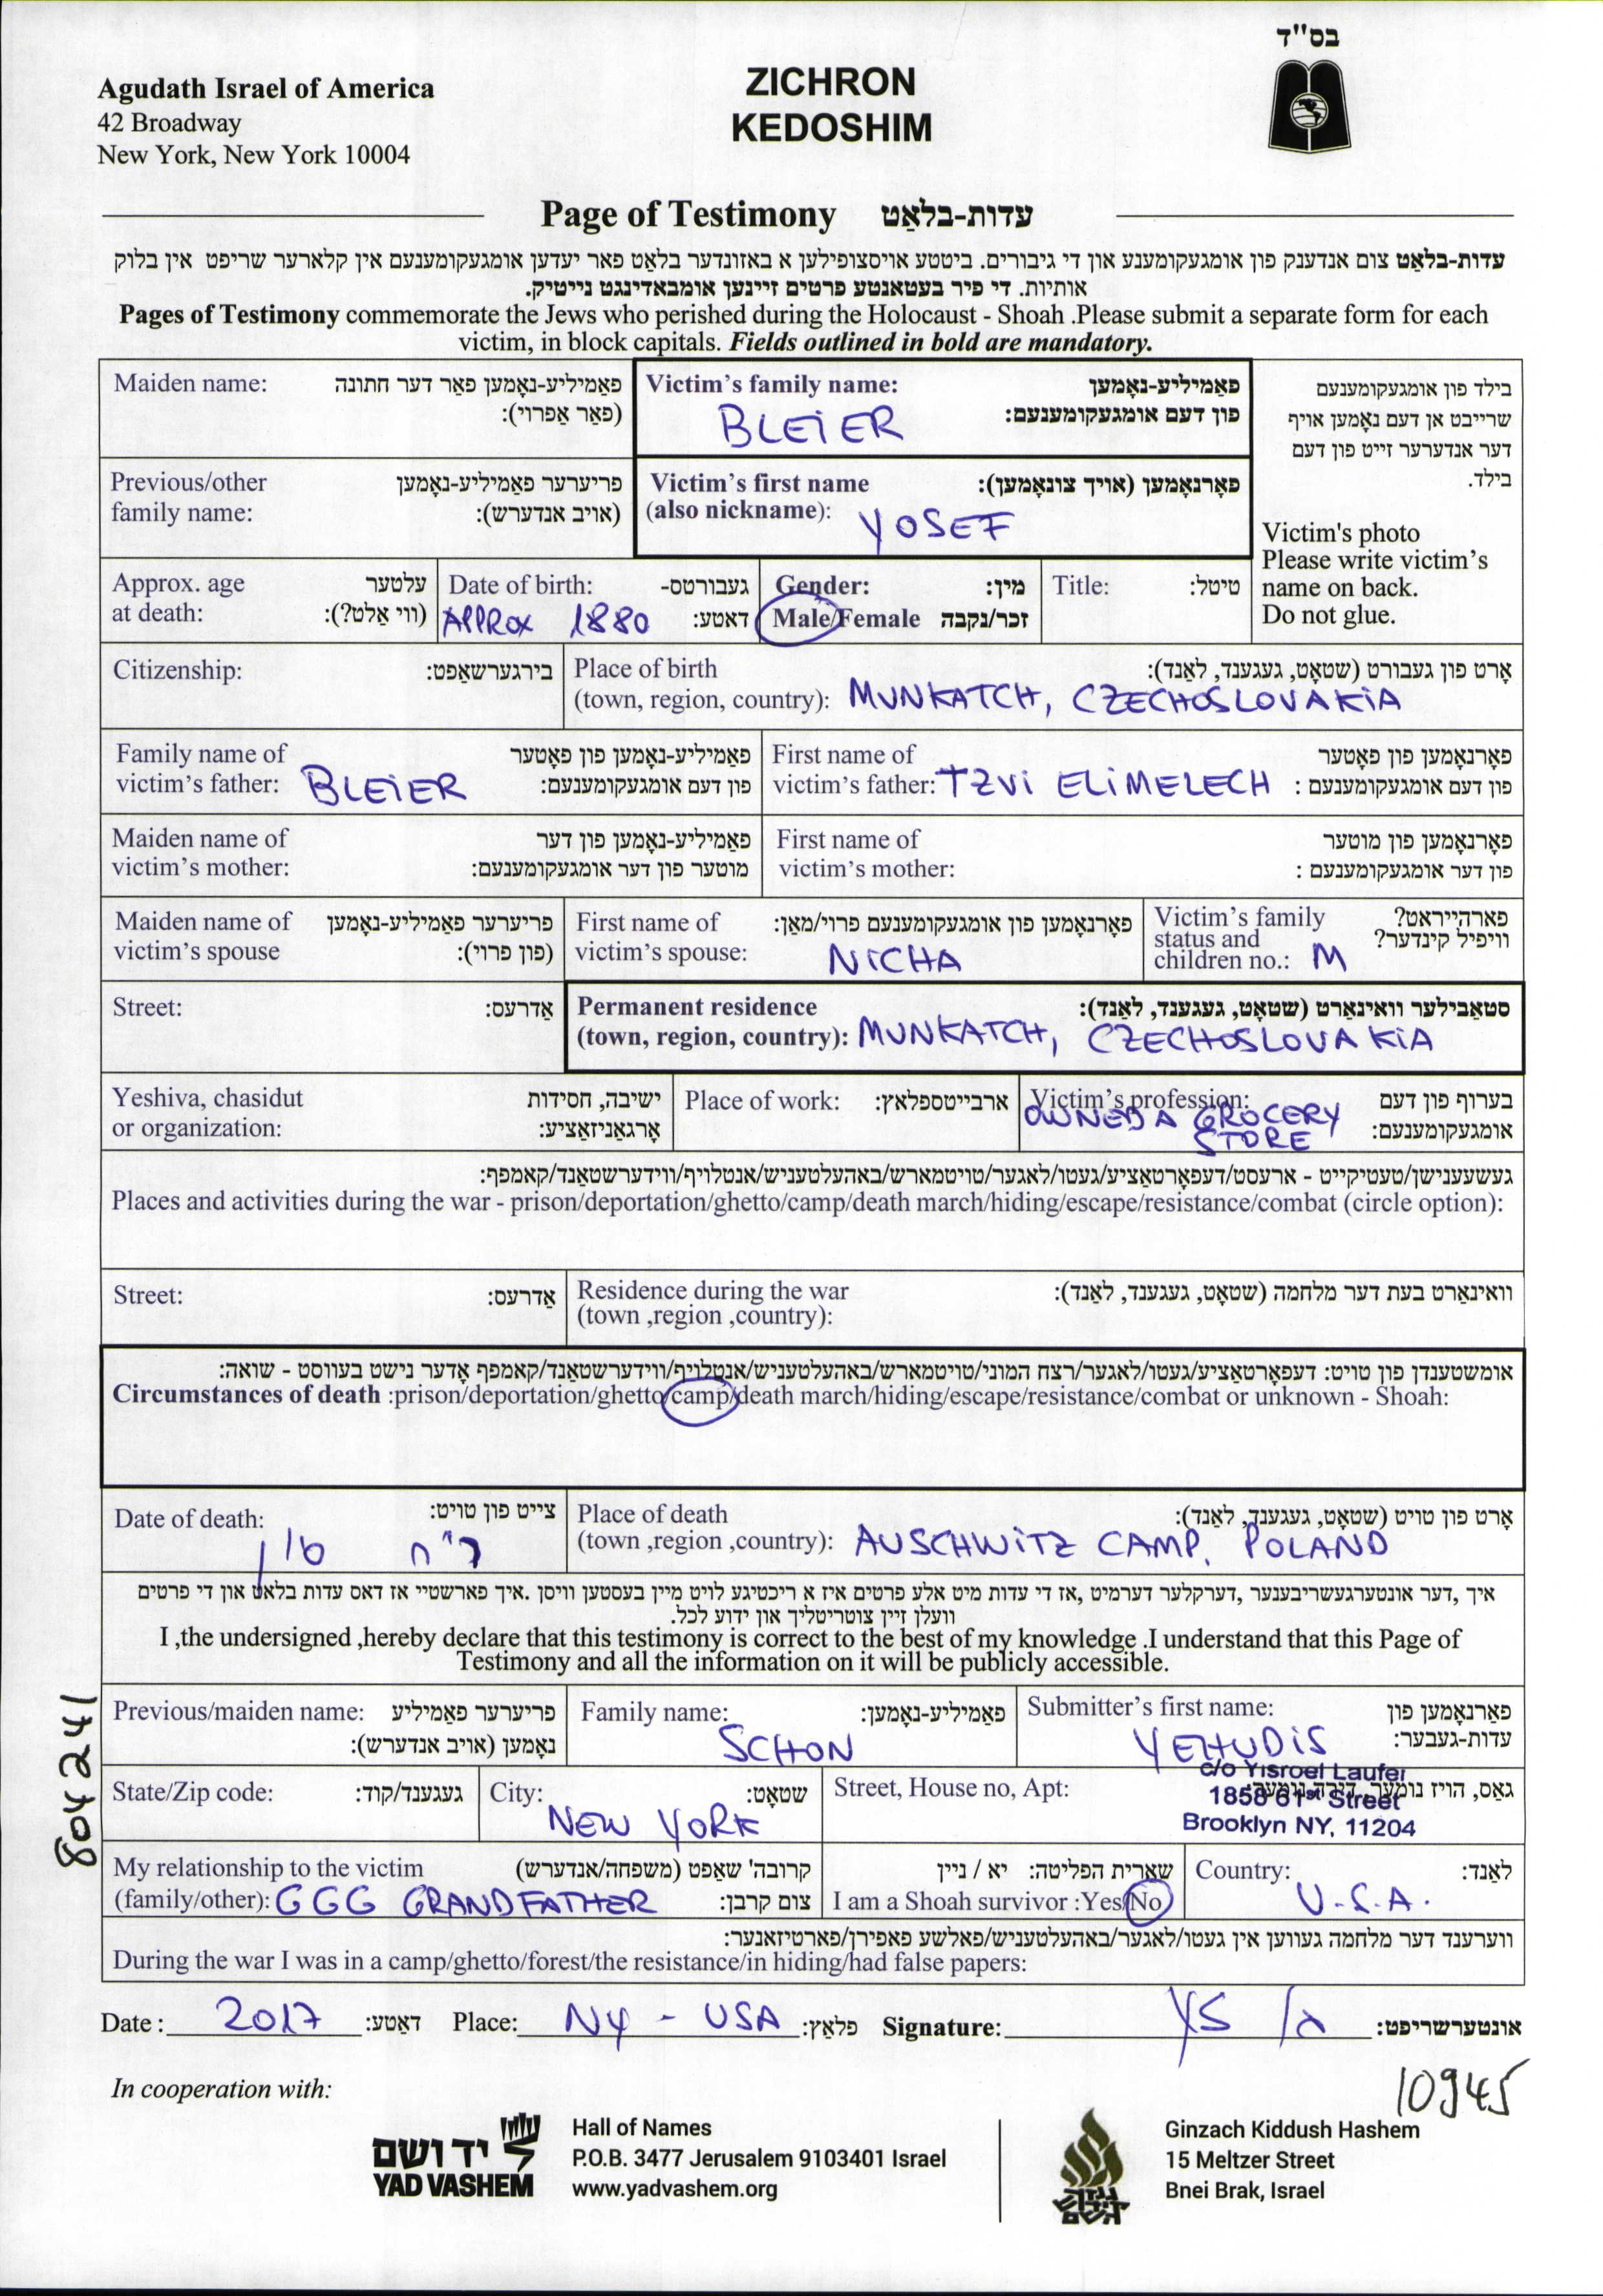 בס"ד
Agudath Israel of America
42 Broadway
New York, New York 10004
ZICHRON
KEDOSHIM
Page of Testimony עדות-בלאַט
עדות-בלאַט צום אנדענק פון אומגעקומענע און די גיבורים. ביטטע אויסצופילען א באזונדער בלאַט פאר יעדען אומגעקומענעם אין קלארער שריפט אין בלוק
אותיות. די פיר בעטאנטע פרטים זיינען אומבאדינגט נייטיק.
Pages of Testimony commemorate the Jews who perished during the Holocaust - Shoah .Please submit a separate form for each
victim, in block capitals. Fields outlined in bold are mandatory.
Maiden name: פאַמיליע-נאָמען פאַר דער חתונה
(פאַר אַפרוי):
Victim's family name: פאַמיליע-נאָמען
פון דעם אומגעקומענעם:
BLEIER
בילד פון אומגעקומענעם
שרייבט אן דעם נאָמען אויף
דער אנדערער זייט פון דעם
בילד.
Victim's photo
Please write victim's
name on back.
Do not glue.
Previous/other פריערער פאַמיליע-נאָמען
family name: (אויב אנדערש):
Victim's first name פאָרנאָמען (אויך צונאָמען):
(also nickname): YOSEF
Approx. age עלטער
at death: (ווי אַלט?):
Date of birth: געבורטס-
דאטע: APPROX 1880
Gender: מין:
Male/Female זכר/נקבה
Title: טיטל:
Citizenship: בירגערשאַפט:
Place of birth אָרט פון געבורט (שטאָט, געגענד, לאַנד):
(town, region, country): MUNKATCH, CZECHOSLOVAKIA
Family name of פאַמיליע-נאָמען פון פאָטער
victim's father: BLEIER פון דעם אומגעקומענעם:
First name of פאָרנאָמען פון פאָטער
victim's father: TZVI ELIMELECH פון דעם אומגעקומענעם :
Maiden name of פאַמיליע-נאָמען פון דער
victim's mother: מוטער פון דער אומגעקומענעם:
First name of פאָרנאָמען פון מוטער
victim's mother: פון דער אומגעקומענעם :
Maiden name of פריערער פאַמיליע-נאָמען
victim's spouse (פון פרוי):
First name of פאָרנאָמען פון אומגעקומענעם פרוי/מאַן:
victim's spouse: NICHA
Victim's family פארהייראט?
status and וויפיל קינדער?
children no.: M
Street: אַדרעס:
Permanent residence סטאַבילער וואינאַרט (שטאָט, געגענד, לאַנד):
(town, region, country): MUNKATCH, CZECHOSLOVAKIA
Yeshiva, chasidut ישיבה, חסידות
or organization: אָרגאַניזאַציע:
Place of work: ארבייטספלאץ:
Victim's profession: בערוף פון דעם
אומגעקומענעם:
OWNED A GROCERY
STORE
געשעענישן/טעטיקייט - ארעסט/דעפאָרטאַציע/געטו/לאגער/טויטמארש/באהעלטעניש/אנטלויף/ווידערשטאַנד/קאמפף:
Places and activities during the war - prison/deportation/ghetto/camp/death march/hiding/escape/resistance/combat (circle option):
Street: אַדרעס:
Residence during the war וואינאַרט בעת דער מלחמה (שטאָט, געגענד, לאַנד):
(town ,region ,country):
אומשטענדן פון טויט: דעפאָרטאַציע/געטו/לאגער/רצח המוני/טויטמארש/באהעלטעניש/אנטלויף/ווידערשטאַנד/קאמפף אָדער נישט בעוווסט - שואה:
Circumstances of death :prison/deportation/ghetto/camp/death march/hiding/escape/resistance/combat or unknown - Shoah:
Date of death: צייט פון טויט:
Place of death אָרט פון טויט (שטאָט, געגענד, לאַנד):
ר"ח סיון
(town ,region ,country): AUSCHWITZ CAMP, POLAND
איך ,דער אונטערגעשריבענער ,דערקלער דערמיט ,אז די עדות מיט אלע פרטים איז א ריכטיגע לויט מיין בעסטען וויסן .איך פארשטיי אז דאס עדות בלאט און די פרטים
וועלן זיין צוטריטליך און ידוע לכל.
I ,the undersigned ,hereby declare that this testimony is correct to the best of my knowledge .I understand that this Page of
Testimony and all the information on it will be publicly accessible.
Previous/maiden name: פריערער פאַמיליע
נאָמען (אויב אנדערש):
Family name: פאַמיליע-נאָמען:
SCHON
Submitter's first name: פאָרנאָמען פון
עדות-געבער:
YEHUDIS
State/Zip code: געגענד/קוד:
City: שטאָט:
NEW YORK
Street, House no, Apt: גאַס, הויז נומער, דירה נומער:
c/o Yisroel Laufer
1858 61st Street
Brooklyn NY, 11204
My relationship to the victim קרובה' שאַפט (משפחה/אנדערש)
(family/other): GGG GRANDFATHER צום קרבן:
שארית הפליטה: יא / ניין
I am a Shoah survivor :Yes/No
Country: לאַנד:
U.S.A.
ווערענד דער מלחמה געווען אין געטו/לאגער/באהעלטעניש/פאלשע פאפירן/פארטיזאנער:
During the war I was in a camp/ghetto/forest/the resistance/in hiding/had false papers:
Date : 2017 דאַטע: Place: NY - USA פלאַץ: Signature: YS אונטערשריפט:
804241
10945
In cooperation with:
יד ושם
YAD VASHEM
Hall of Names
P.O.B. 3477 Jerusalem 9103401 Israel
www.yadvashem.org
גנזך
קידוש
השם
Ginzach Kiddush Hashem
15 Meltzer Street
Bnei Brak, Israel